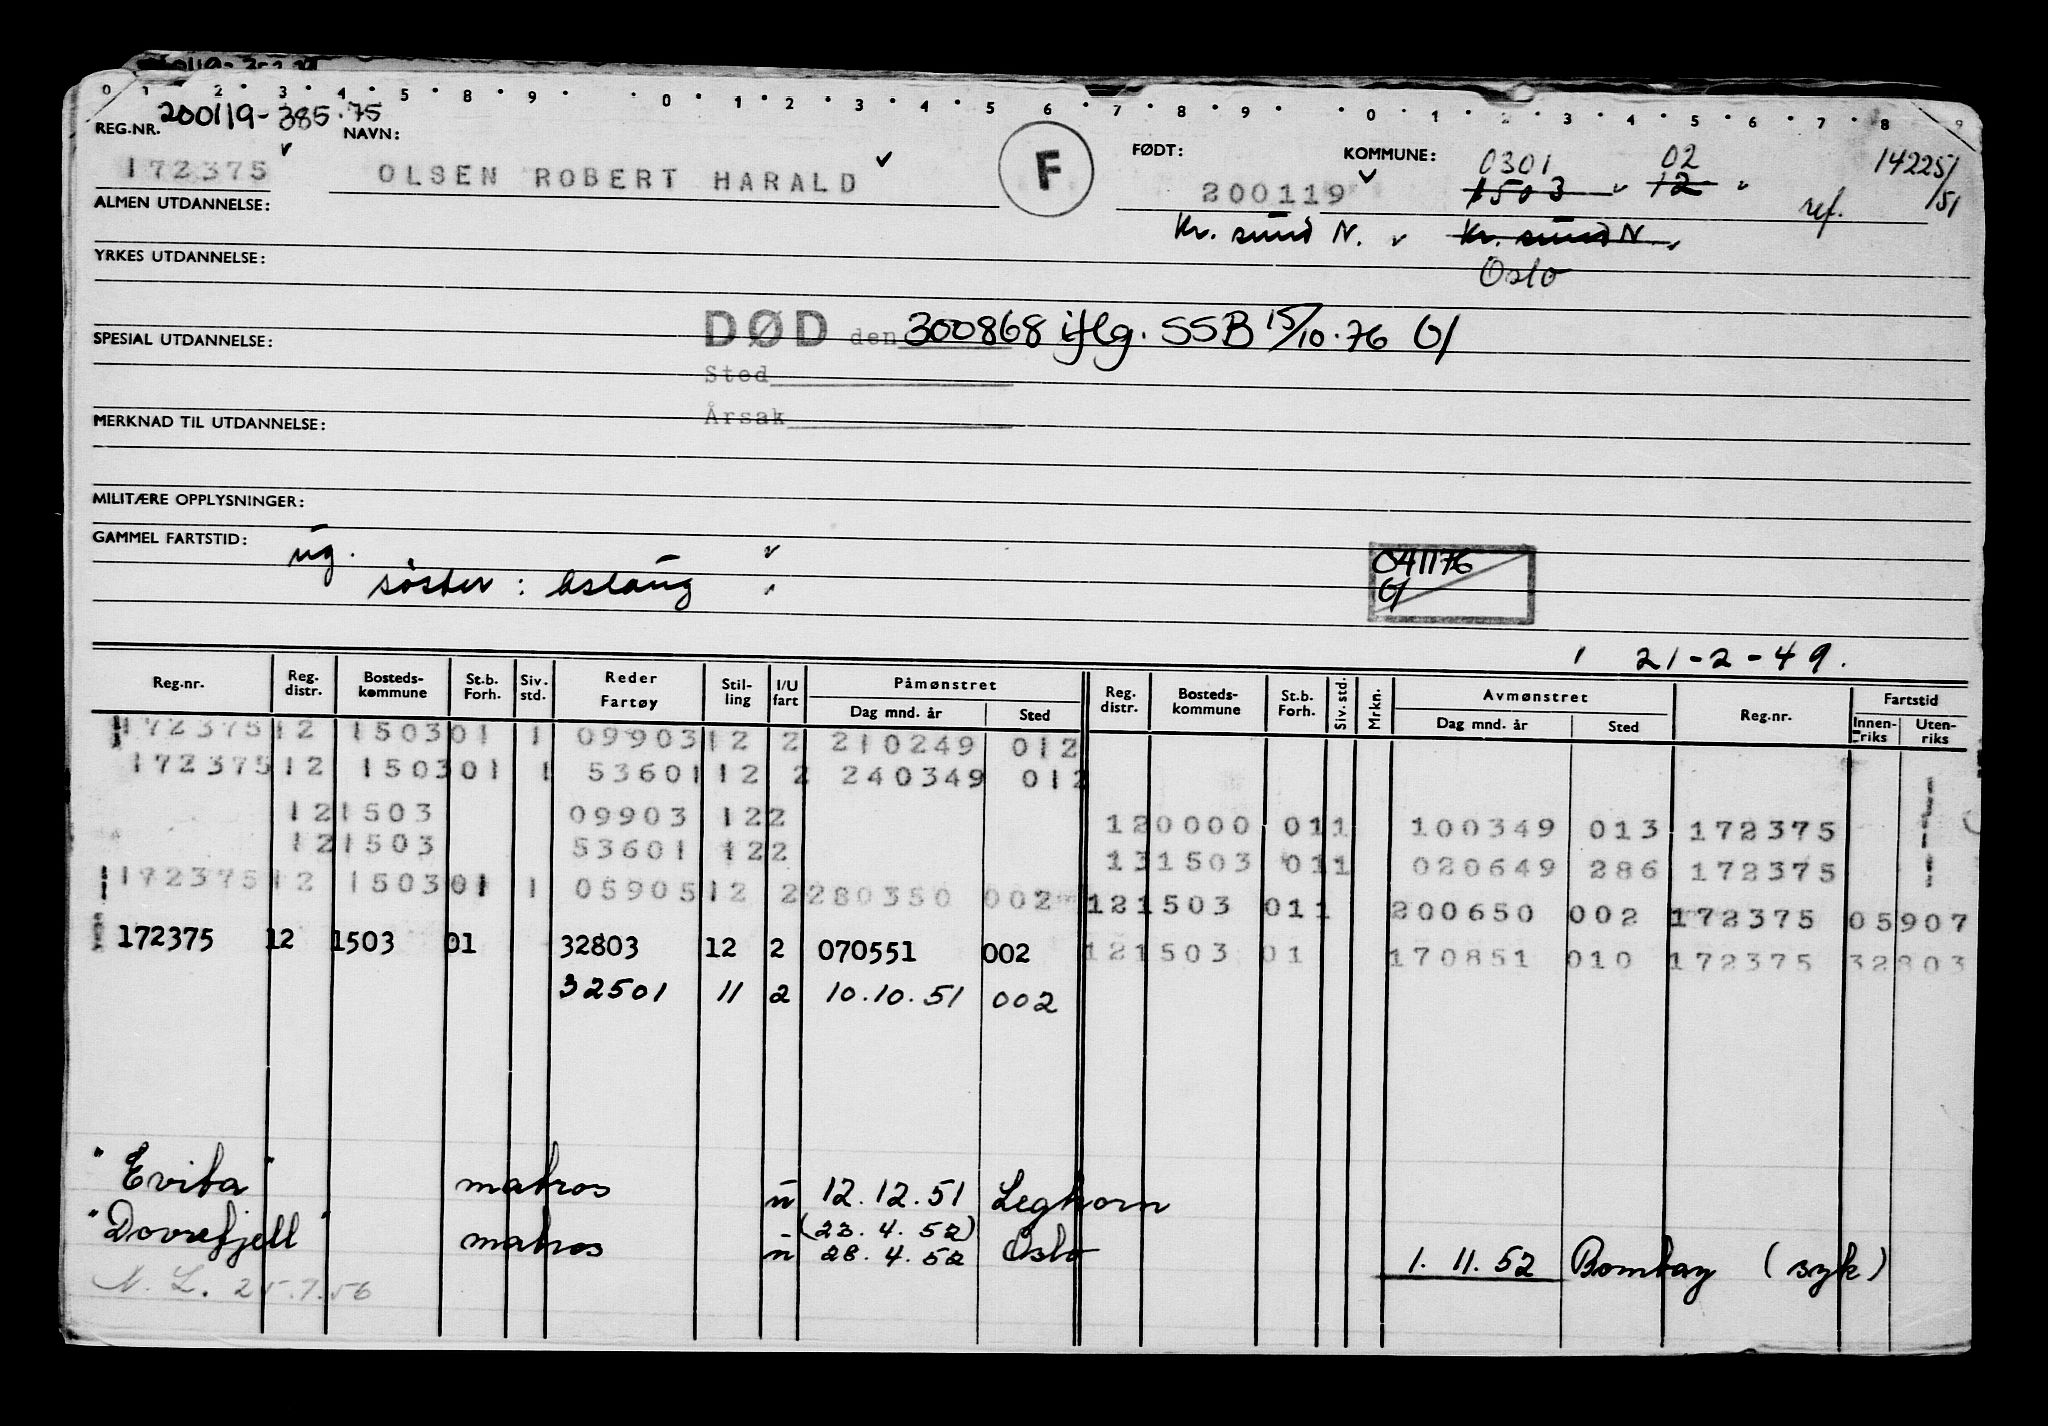 0 1 2 3 4 5 6 8 9 0 1 2 3 4 5 6 7 8 9 0 1 2 3 4 5 6 7 8 9
REG.NR. 200119-385.75 NAVN: FØDT: KOMMUNE: 0301 02 14225/51
172375 OLSEN ROBERT HARALD F 200119 1503 12 ref.
ALMEN UTDANNELSE: Kr. sund N. Kr. sund N.
YRKES UTDANNELSE: Oslo
DØD den 300868 iflg. SSB 15/10.76
SPESIAL UTDANNELSE:
Sted
Årsak
MERKNAD TIL UTDANNELSE:
MILITÆRE OPPLYSNINGER:
GAMMEL FARTSTID: ug. 041176
søster: Aslaug
21-2-49.
Reg.nr. Reg. distr. Bosteds-kommune St.b. Forh. Siv. std. Reder Fartøy Stil-ling I/U fart Påmønstret Dag mnd. år Sted Reg. distr. Bosteds-kommune St.b. Forh. Siv. std. Mrkn. Avmønstret Dag mnd. år Sted Reg.nr. Fartstid Innen-riks Uten-riks
172375 12 1503 01 1 09903 12 2 210249 012
172375 12 1503 01 1 53601 12 2 240349 012
12 1503 09903 12 2 12 0000 01 1 100349 013 172375
12 1503 53601 12 2 13 1503 01 1 020649 286 172375
172375 12 1503 01 1 05905 12 2 280350 002 12 1503 01 1 200650 002 172375 05907
172375 12 1503 01 32803 12 2 070551 002 12 1503 01 170851 010 172375 32803
32501 11 2 10.10.51 002
"Evita" matros u 12.12.51 Leghorn
(23.4.52)
"Dovrefjell" matros u 28.4.52 Oslo 1.11.52 Bombay (syk)
N. L. 25.7.56